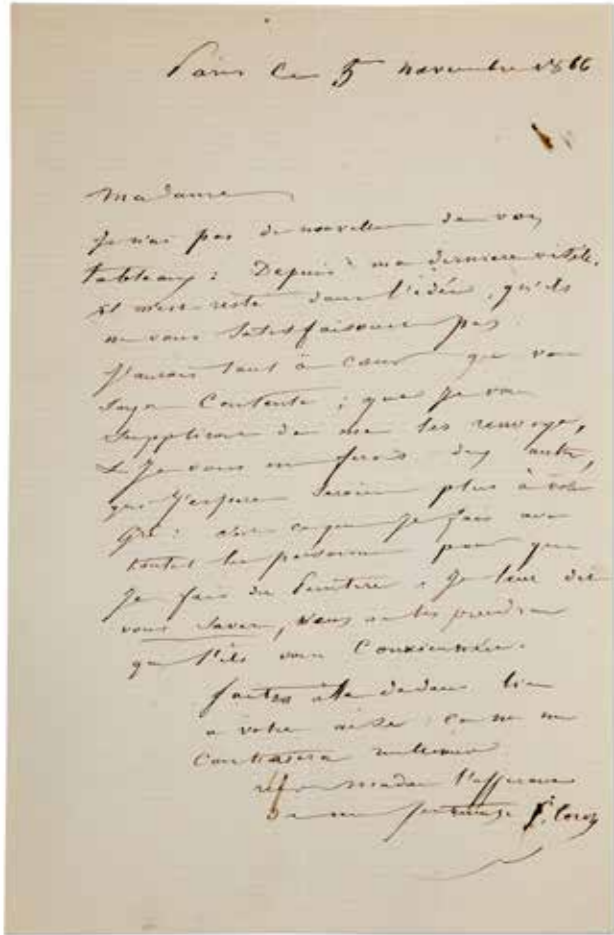 Paris ce 5 novembre 1866
Madame
Je n'ai pas de nouvelle de vos
tableaux : Depuis ma derniere visite,
il m'est resté dans l'idée, qu'ils
ne vous satisfaisoient pas.
J'aurais tant à coeur que vous
soyez Contente ; que je vous
supplierai de me les renvoyer,
& Je vous en ferais des autres,
que J'espère seraient plus à votre
Gré : c'est ce que je fais avec
toutes les personnes pour qui
Je fais de Peinture . Je leur dis
vous savez, vous ne les prendrez
que s'ils vous Conviennent.
faites là dedans bien
à votre aise : ca ne me
Contrariera nullement
Madame l'assurance
de mes sentiments C. Corot